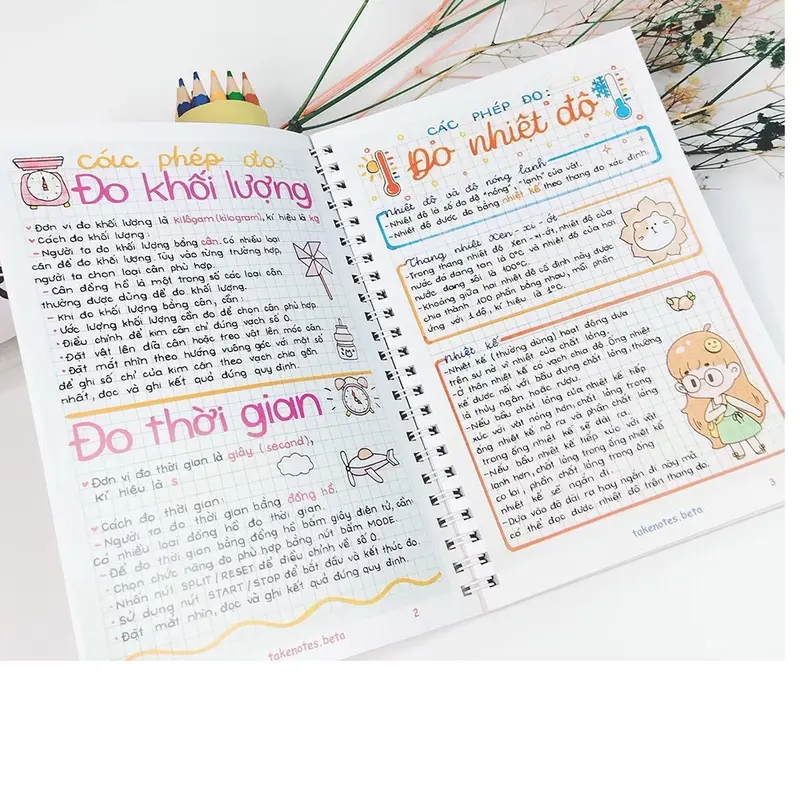 các phép đo:
Đo khối lượng
Đơn vị đo khối lượng là kilôgam (kilogram), kí hiệu là kg
Cách đo khối lượng:
- Người ta đo khối lượng bằng cân. Có nhiều loại
cân để đo khối lượng. Tùy vào từng trường hợp,
người ta chọn loại cân phù hợp.
- Cân đồng hồ là một trong số các loại cân
thường được dùng để đo khối lượng.
- Khi đo khối lượng bằng cân, cần:
• Ước lượng khối lượng cần đo để chọn cân phù hợp.
• Điều chỉnh để kim cân chỉ đúng vạch số 0.
• Đặt vật lên đĩa cân hoặc treo vật lên móc cân.
• Đặt mắt nhìn theo hướng vuông góc với mặt số
để ghi số chỉ của kim cân theo vạch chia gần
nhất, đọc và ghi kết quả đúng quy định.
Đo thời gian
Đơn vị đo thời gian là giây (second),
kí hiệu là s
Cách đo thời gian:
- Người ta đo thời gian bằng đồng hồ.
Có nhiều loại đồng hồ đo thời gian.
- Để đo thời gian bằng đồng hồ bấm giây điện tử, cần:
• Chọn chức năng đo phù hợp bằng nút bấm MODE.
• Nhấn nút SPLIT/RESET để điều chỉnh về số 0.
• Sử dụng nút START/STOP để bắt đầu và kết thúc đo.
• Đặt mắt nhìn, đọc và ghi kết quả đúng quy định.
2
takenotes.beta
CÁC PHÉP ĐO:
Đo nhiệt độ
Nhiệt độ và độ nóng lạnh
- Nhiệt độ là số đo độ "nóng", "lạnh" của vật.
- Nhiệt độ được đo bằng nhiệt kế theo thang đo xác định.
Thang nhiệt Xen - xi - ớt
- Trong thang nhiệt độ Xen-xi-ớt, nhiệt độ của
nước đá đang tan là 0°C và nhiệt độ của hơi
nước đang sôi là 100°C.
- Khoảng giữa hai nhiệt độ cố định này được
chia thành 100 phần bằng nhau, mỗi phần
ứng với 1 độ, kí hiệu là 1°C.
Nhiệt kế
- Nhiệt kế (thường dùng) hoạt động dựa
trên sự nở vì nhiệt của chất lỏng.
- Ở thân nhiệt kế có vạch chia độ. Ống nhiệt
kế được nối với bầu đựng chất lỏng, thường
là thủy ngân hoặc rượu.
- Nếu bầu chất lỏng của nhiệt kế tiếp
xúc với vật nóng hơn, chất lỏng trong
ống nhiệt kế nở ra và phần chất lỏng
trong ống nhiệt kế sẽ dài ra.
- Nếu bầu nhiệt kế tiếp xúc với vật
lạnh hơn, chất lỏng trong ống nhiệt kế
co lại, phần chất lỏng trong ống
nhiệt kế sẽ ngắn đi.
- Dựa vào độ dài ra hay ngắn đi này mà
có thể đọc được nhiệt độ trên thang đo.
3
takenotes.beta